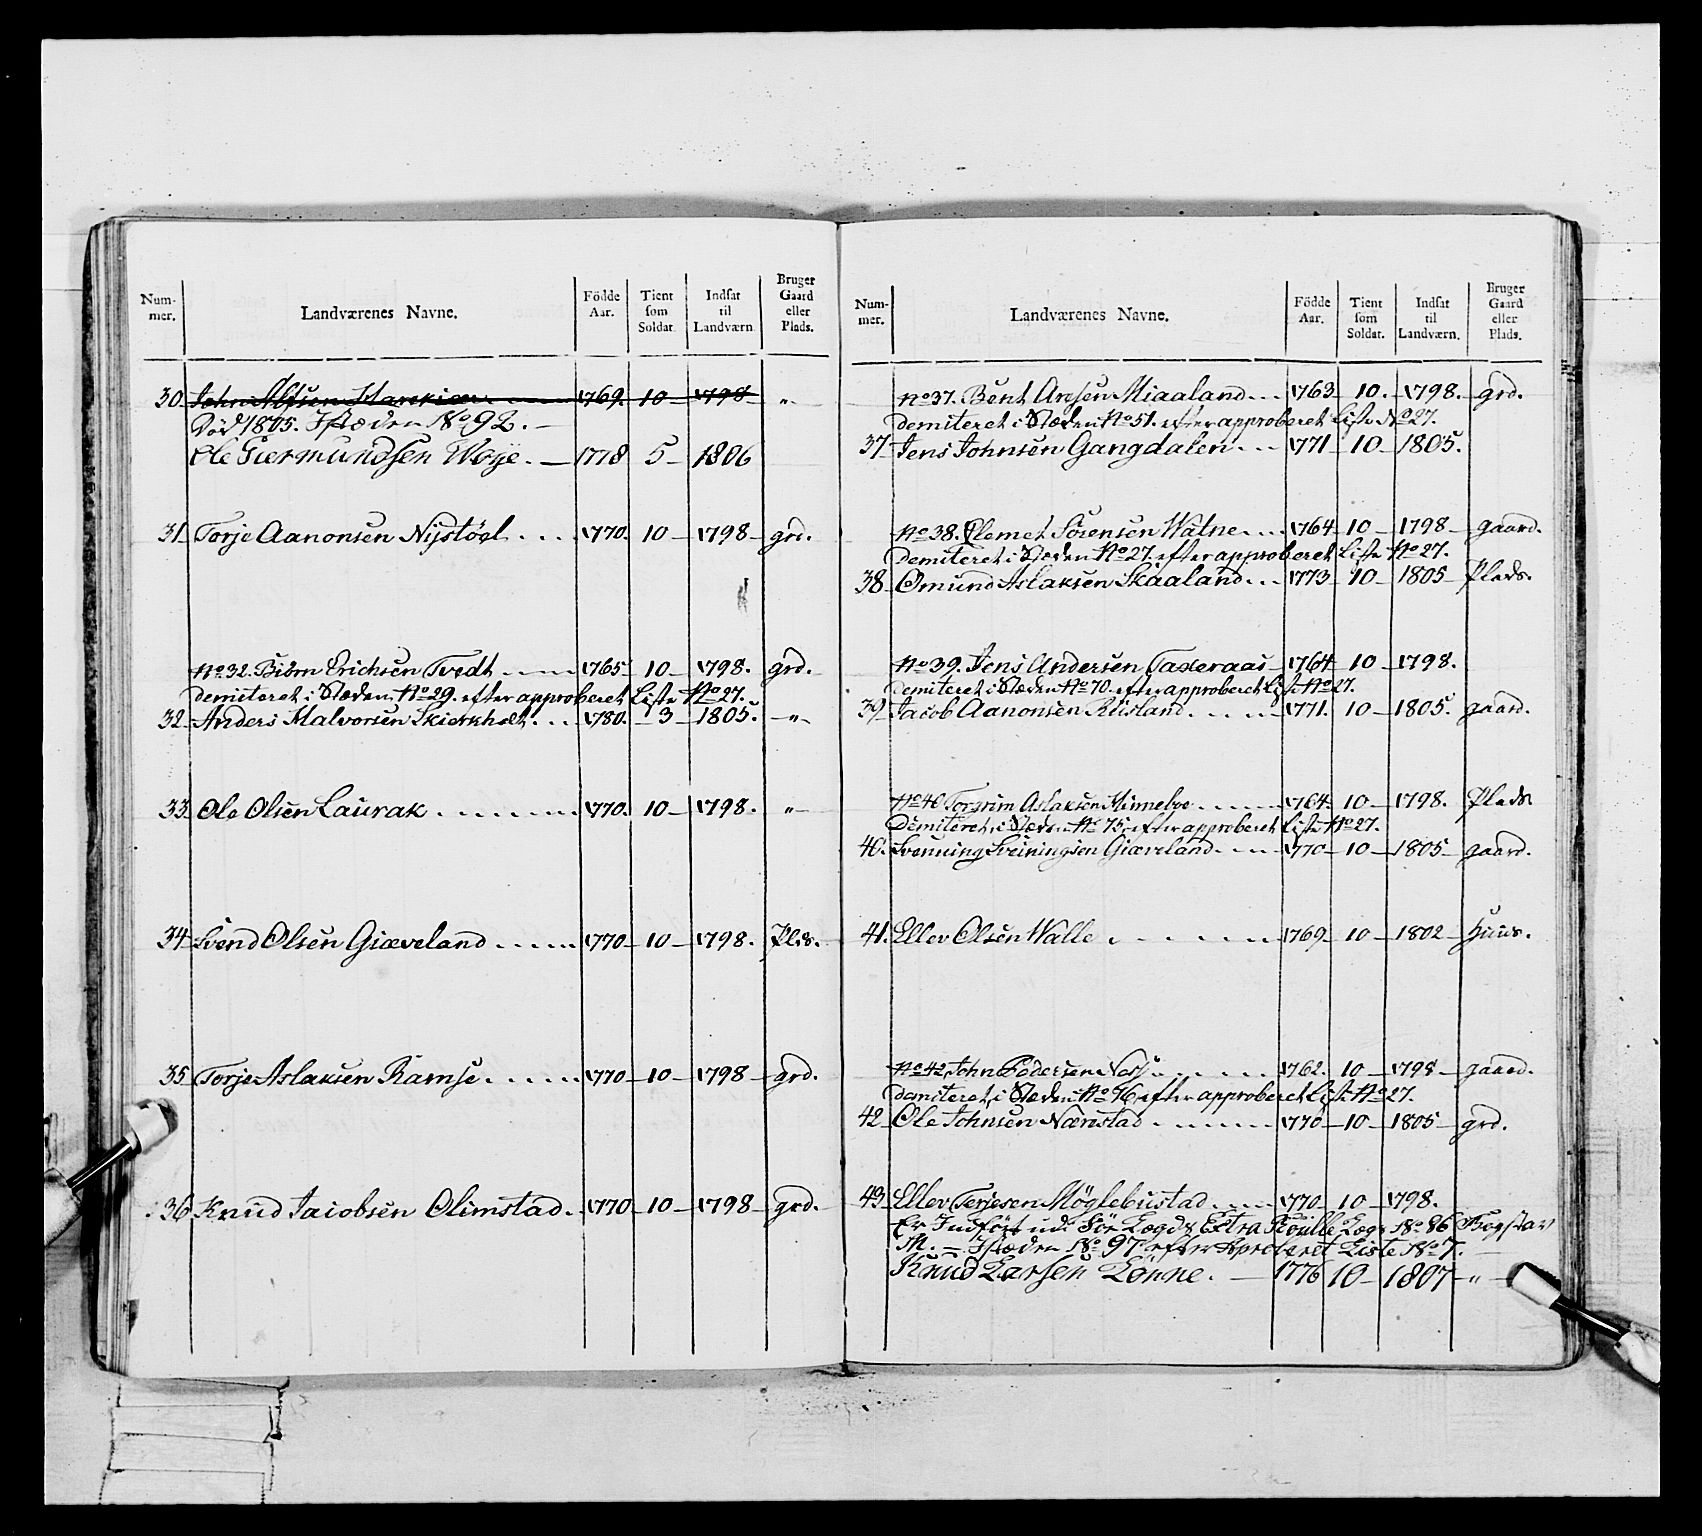 Num-
mer.
Landværenes Navne.
Födde
Aar.
Tient
som
Soldat.
Indsat
til
Landværn.
Bruger
Gaard
eller
Plads.
30. John Alfsen 1769. 10 1798 "
Död 1805. I Stæden No 92.
Ole Giermundsen Woje. 1778 5 1806
31. Torje Aanonsen Nijstöel 1770. 10 1798 grd.
No 32. Biörn Erichsen Tvedt 1765 10 1798. grd.
demiteret i Stæden No 29. efter approberet Liste No 27.
32. Anders Halvorsen Skierkholt 1780. 3 1805. "
33. Ole Olsen Laurak 1770. 10 1798. "
34. Svend Olsen Giæveland 1770 10 1798. Plds.
35. Torje Aslaksen Ramse 1770 10 1798 grd.
36. Knud Jacobsen Olimstad. 1770 10 1798 grd.
Num-
mer.
Landværenes Navne.
Födde
Aar.
Tient
som
Soldat.
Indsat
til
Landværn.
Bruger
Gaard
eller
Plads.
No 37. Bent Aresen Miaaland 1763 10. 1798. grd.
demiteret i Stæden No 51. efter approberet Liste No 27.
37. Jens Johnsen Gangdalen 1771 10 1805.
No 38. Clemet Sörensen Watne 1764 10 1798 gaard.
demiteret i Stæden No 27. efter approberet Liste No 27.
38. Omund Aslaksen Skaaland 1773 10 1805 Plads.
No 39. Jens Andersen Taxeraas 1764 10 1798.
demiteret i Stæden No 70. efter approberet Liste No 27.
39. Jacob Aanonsen Riisland 1771. 10 1805. gaard.
No 40 Torgrim Aslaksen Hinnebye 1764. 10 1798. Plads
demiteret i Stæden No 75. efter approberet Liste No 27.
40. Svenning Sveiningsen Giæveland 1770 10 1805 gaard.
41. Ellev Olsen Walle 1769 10 1802 Huus.
No 42 John Pedersen Næs 1762. 10 1798 gaard.
demiteret i Stæden No 76 efter approberet Liste No 27.
42. Ole Johnsen Nærestad 1770 10 1805 grd.
43. Ellev Terjesen Möglebustad 1770 10 1798.
Er Indfört udi Sör Lægds Extra Roulle Læg No 86
M. I Stæden No 97 efter Aproberet Liste No 7.
Knud Larsen Lönne. 1776 10 1807 "